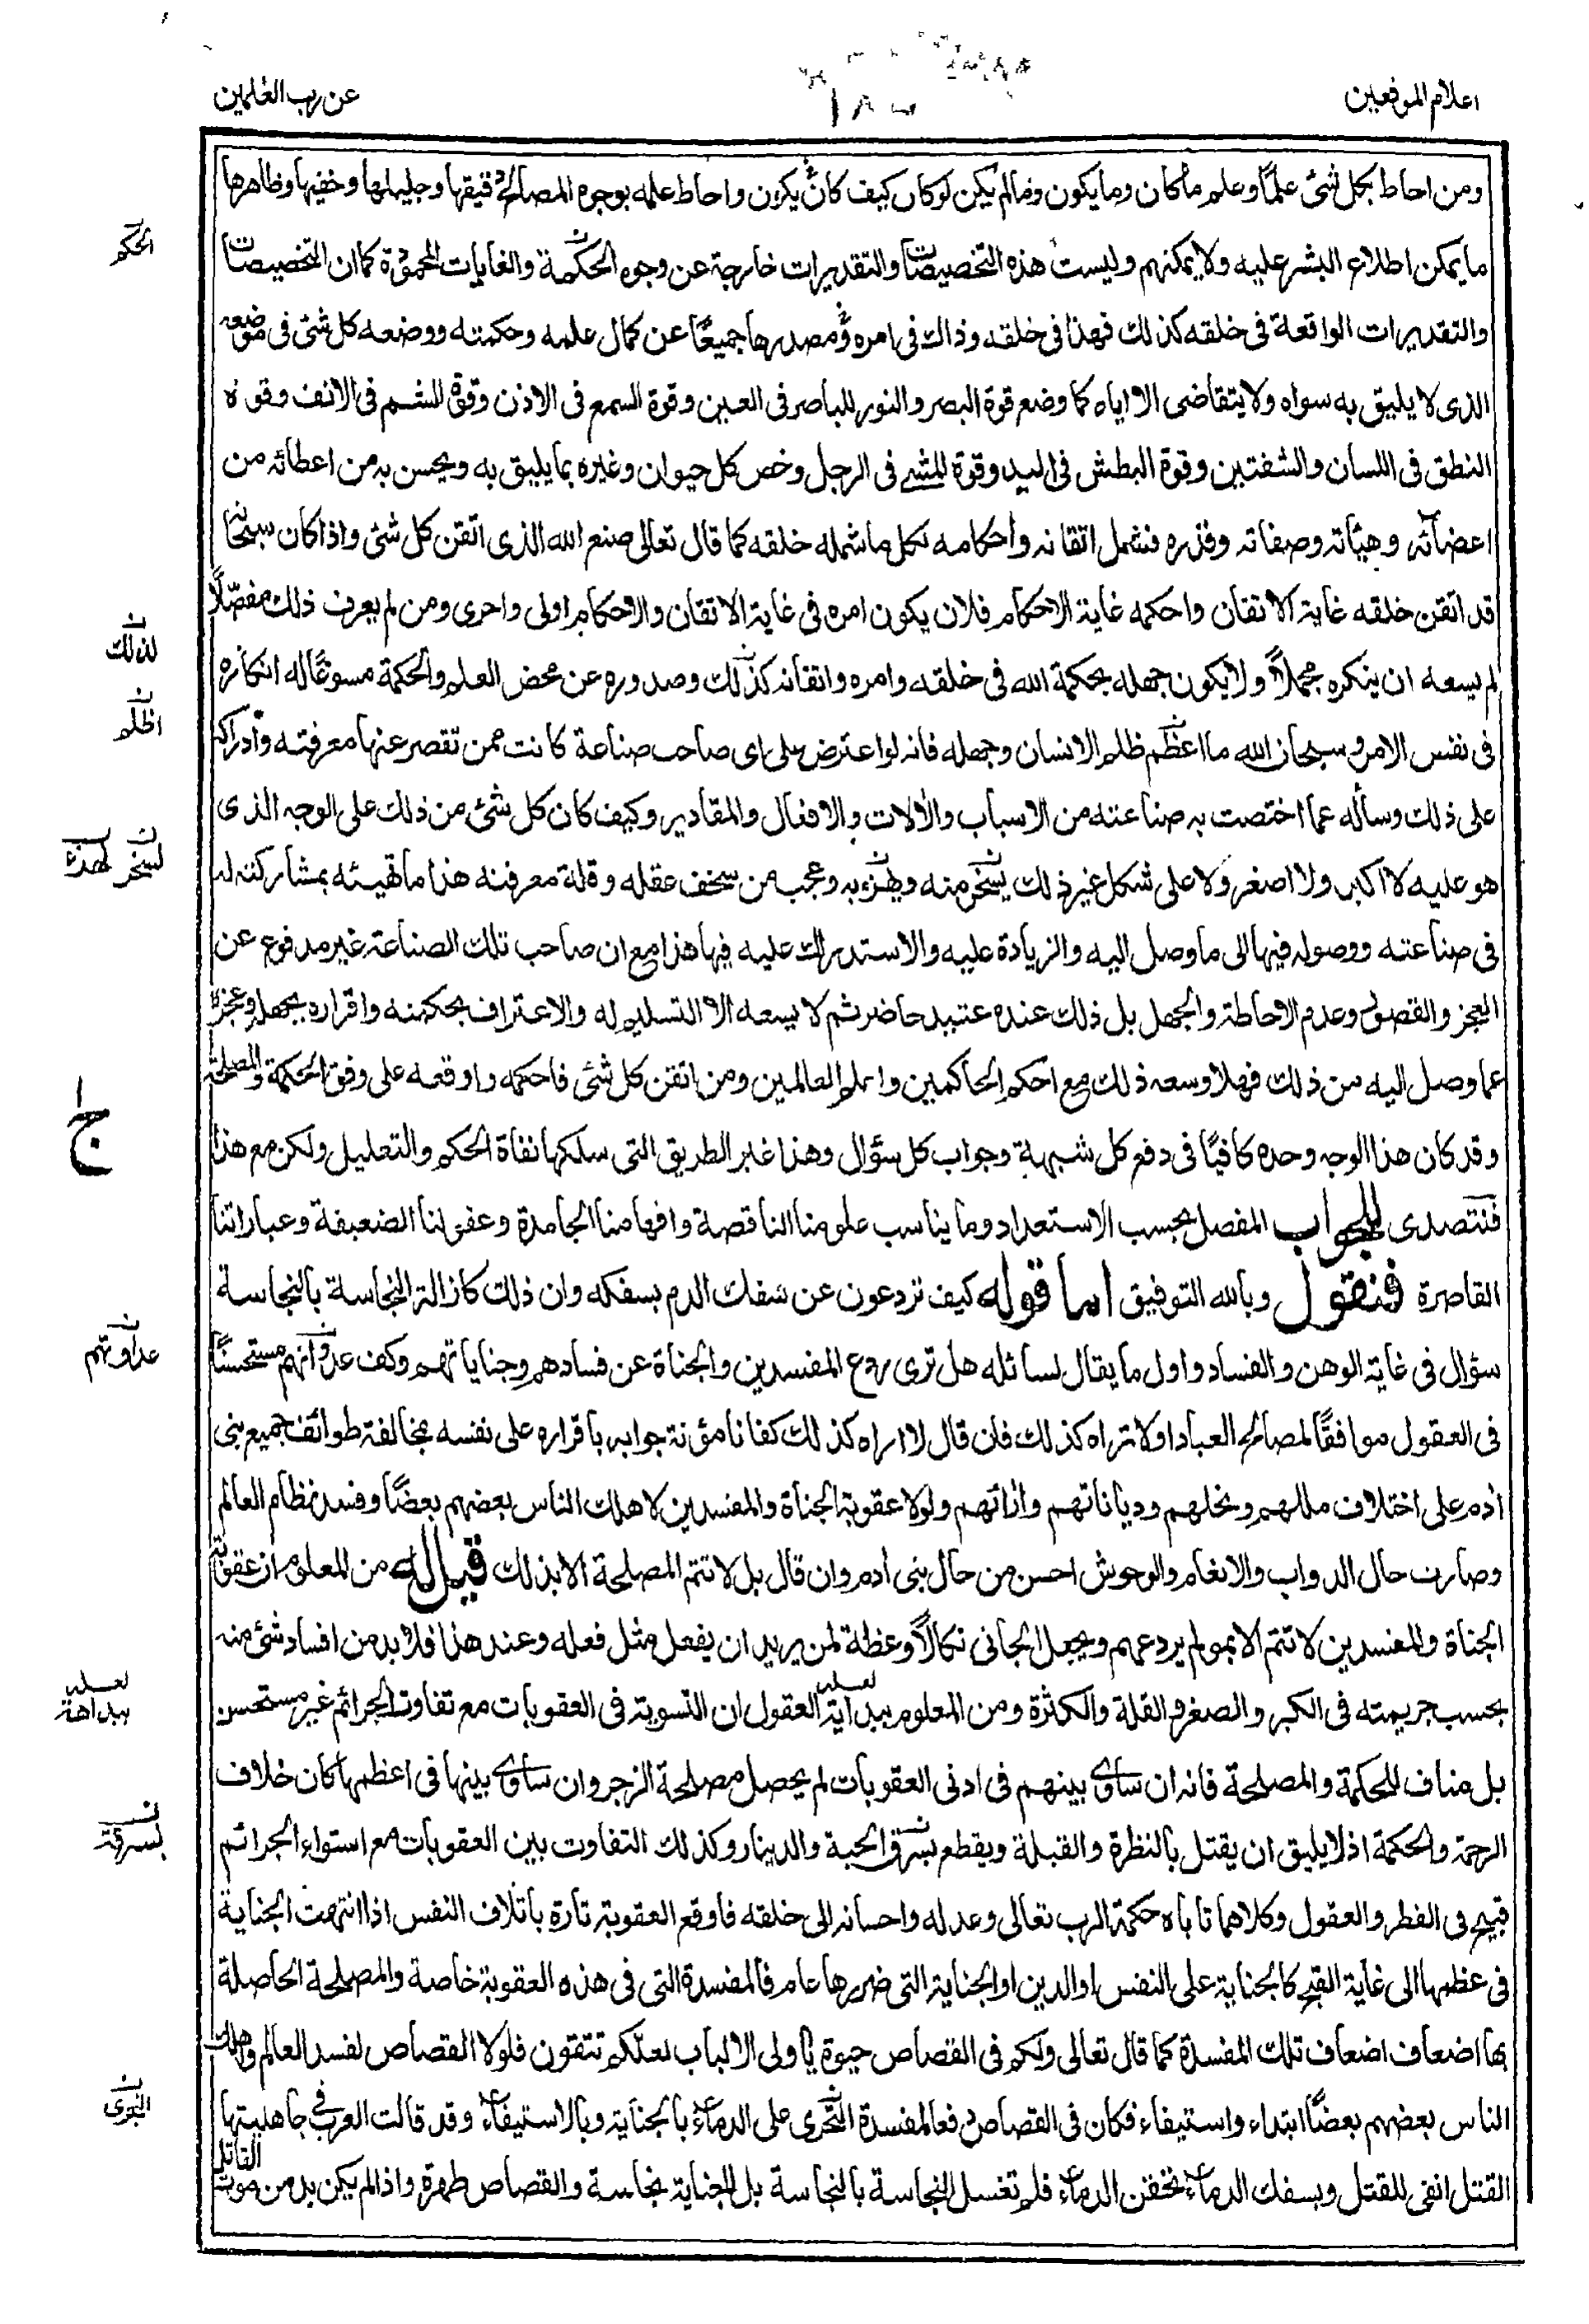 اعلام الموقعين
عن رب العٰلمين
ومن احاط بكل شئ علمًا وعلم ما كان وما يكون وما لم يكن لو كان كيف كان يكون واحاط علمه بوجوه المصالح دقيقها وجليلها وخفيها وظاهرها
ما يمكن اطلاع البشر عليه ولا يمكنهم وليست هذه التخصيصات والتقديرات خارجة عن وجوه الحكمة والغايات المحمودة كما ان التخصيصات
والتقديرات الواقعة فى خلقه كذلك فهذا فى خلقه وذاك فى امره ومصدرها جميعًا عن كمال علمه وحكمته ووضعه كل شئ فى موضعه
الذى لا يليق به سواه ولا يتقاضى الا اياه كما وضع قوة البصر والنور للباصر فى العين وقوة السمع فى الاذن وقوة الشم فى الانف وقوة
النطق فى اللسان والشفتين وقوة البطش فى اليد وقوة المشى فى الرجل وخص كل حيوان وغيره بما يليق به ويحسن به من اعطائه من
اعضائه وهيئاته وصفاته وقدره فشمل اتقانه واحكامه لكل ما شمله خلقه كما قال تعالى صنع الله الذى اتقن كل شئ واذا كان سبحانه
قد اتقن خلقه غاية الاتقان واحكمه غاية الاحكام فلان يكون امره فى غاية الاتقان والاحكام اولى واحرى ومن لم يعرف ذلك مفصّلًا
لم يسعه ان ينكره مجملًا ولا يكون جهله بحكمة الله فى خلقه وامره واتقانه كذلك وصدوره عن محض العلم والحكمة مسوغًا له انكاره
فى نفس الامر وسبحان الله ما اعظم ظلم الانسان وجهله فانه لو اعترض على اى صاحب صناعة كانت ممن تقصر عنها معرفته وادراكه
على ذلك وسأله عما اختصت به صناعته من الاسباب والآلات والافعال والمقادير وكيف كان كل شئ من ذلك على الوجه الذى
هو عليه لا اكبر ولا اصغر ولا على شكل غير ذلك يسخر منه ويهزء به وعجب من سخف عقله وقلة معرفته هذا ما تهيئه بمشاركته له
فى صناعته ووصوله فيها الى ما وصل اليه والزيادة عليه والاستدراك عليه فيها هذا مع ان صاحب تلك الصناعة غير مدفوع عن
العجز والقصور وعدم الاحاطة والجهل بل ذلك عنده عتيد حاضر ثم لا يسعه الا التسليم له والاعتراف بحكمته واقراره بجهله وعجزه
عما وصل اليه من ذلك فهلا وسعه ذلك مع احكم الحاكمين واعلم العالمين ومن اتقن كل شئ فاحكمه واوقعه على وفق الحكمة والمصلحة
وقد كان هذا الوجه وحده كافيًا فى دفع كل شبهة وجواب كل سؤال وهذا غير الطريق التى سلكها نفاة الحكم والتعليل ولكن مع هذا
فنتصدى للجواب المفصل بحسب الاستعداد وما يناسب علومنا الناقصة وافهامنا الجامدة وعقولنا الضعيفة وعباراتنا
القاصرة فنقول وبالله التوفيق اما قوله كيف تردعون عن سفك الدم بسفكه وان ذلك كازالة النجاسة بالنجاسة
سؤال فى غاية الوهن والفساد واول ما يقال لسائله هل ترى ردع المفسدين والجناة عن فسادهم وجناياتهم وكف عدوانهم مستحسنًا
فى العقول موافقًا لمصالح العباد اولا تراه كذلك فان قال لا اراه كذلك كفانا مؤنة جوابه باقراره على نفسه بمخالفة طوائف جميع بنى
آدم على اختلاف مللهم ونحلهم ودياناتهم وآرائهم ولولا عقوبة الجناة والمفسدين لاهلك الناس بعضهم بعضًا وفسد نظام العالم
وصارت حال الدواب والانعام والوحوش احسن من حال بنى آدم وان قال بل لا تتم المصلحة الا بذلك قيل له من المعلوم ان عقوبة
الجناة والمفسدين لا تتم الا بمولم يردعهم ويجعل الجانى نكالًا وعظة لمن يريد ان يفعل مثل فعله وعند هذا فلا بد من افساد شئ منه
بحسب جريمته فى الكبر والصغر والقلة والكثرة ومن المعلوم ببداية العقول ان التسوية فى العقوبات مع تفاوت الجرائم غير مستحسن
بل مناف للحكمة والمصلحة فانه ان ساوى بينهم فى ادنى العقوبات لم يحصل مصلحة الزجر وان ساوى بينها فى اعظمها كان خلاف
الرحمة والحكمة اذ لا يليق ان يقتل بالنظرة والقبلة ويقطع بسرق الحبة والدينار وكذلك التفاوت بين العقوبات مع استواء الجرائم
قبيح فى الفطر والعقول وكلاهما تاباه حكمة الرب تعالى وعدله واحسانه الى خلقه فاوقع العقوبة تارة باتلاف النفس اذا انتهت الجناية
فى عظمها الى غاية القبح كالجناية على النفس او الدين او الجناية التى ضررها عام فالمفسدة التى فى هذه العقوبة خاصة والمصلحة الحاصلة
بها اضعاف اضعاف تلك المفسدة كما قال تعالى ولكم فى القصاص حيوة يا اولى الالباب لعلكم تتقون فلولا القصاص لفسد العالم واهلك
الناس بعضهم بعضًا ابتداء واستيفاء فكان فى القصاص دفعا لمفسدة التجرى على الدماء بالجناية وبالاستيفاء وقد قالت العرب فى جاهليتها
القتل انفى للقتل وبسفك الدماء تحقن الدماء فلم تغسل النجاسة بالنجاسة بل الجناية نجاسة والقصاص طهرة واذا لم يكن بد من موت القاتل
الحكم
لذلك
اظلم
لسخر لهذه
ج ا
عداوتهم
لعله
ببداهة
لعله
بسرقة
التجرى